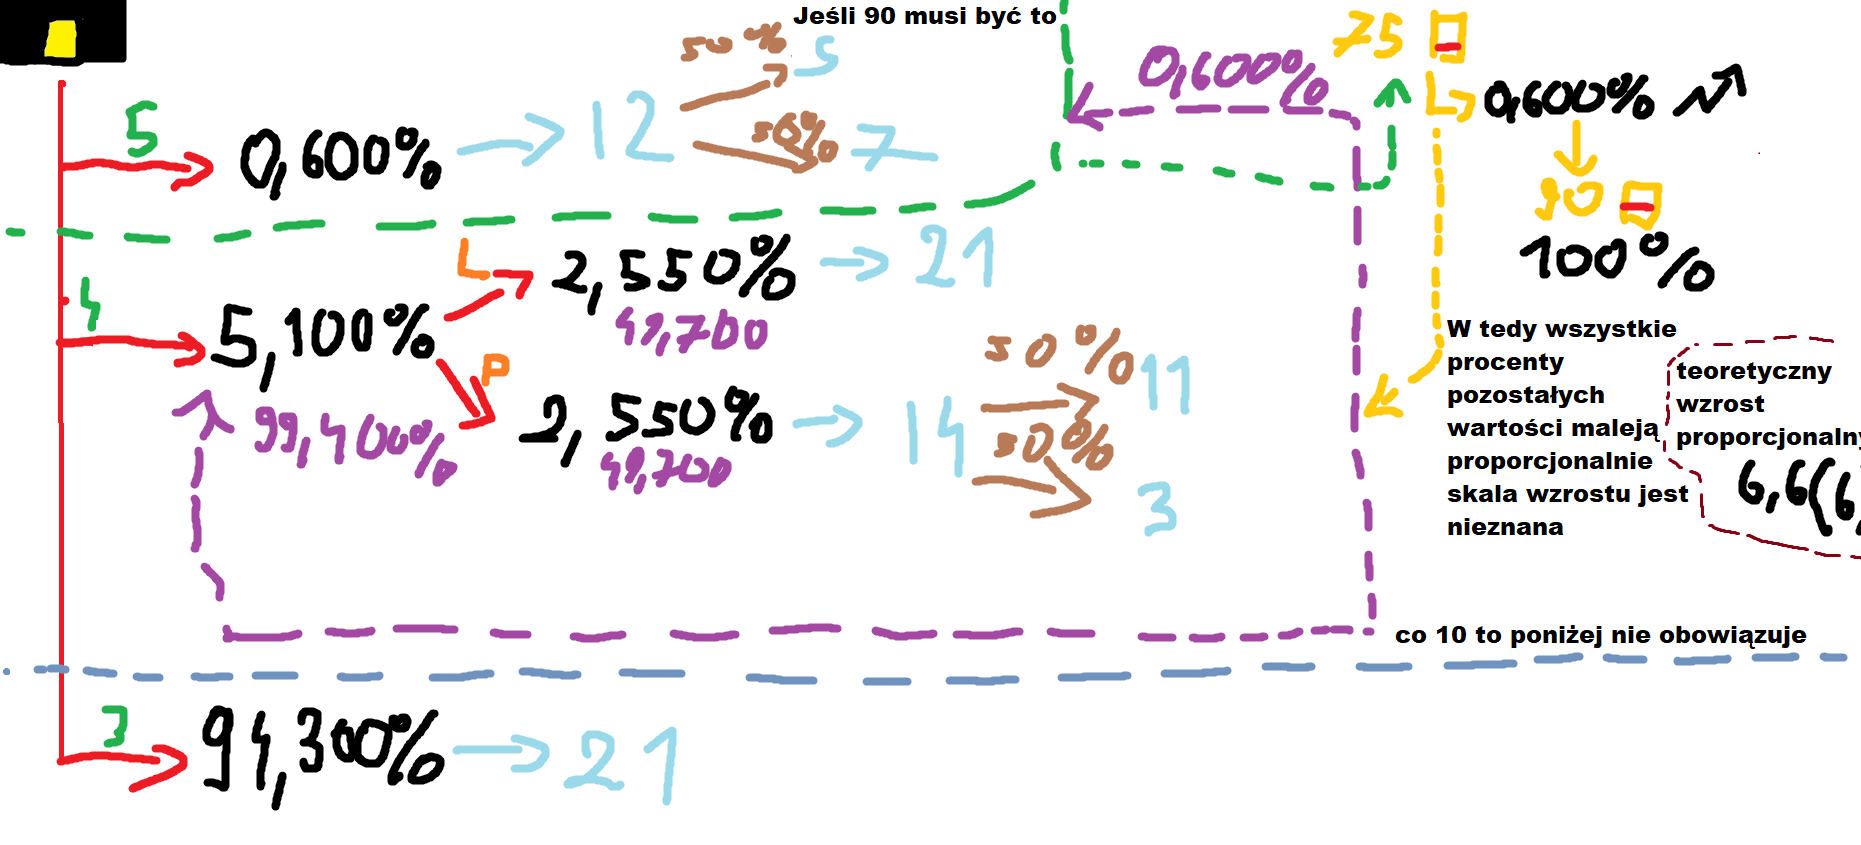 Jeśli 90 musi być to
50%
5
75
0,600%
0,600%
5
0,600%
12
50%
7
90
100%
L
2,550%
21
49,700
4
5,100%
P
99,400%
2,550%
49,700
14
50%
11
50%
3
W tedy wszystkie
procenty
pozostałych
wartości maleją
proporcjonalnie
skala wzrostu jest
nieznana
teoretyczny
wzrost
proporcjonalny
6,6(6,
co 10 to poniżej nie obowiązuje
3
94,300%
21